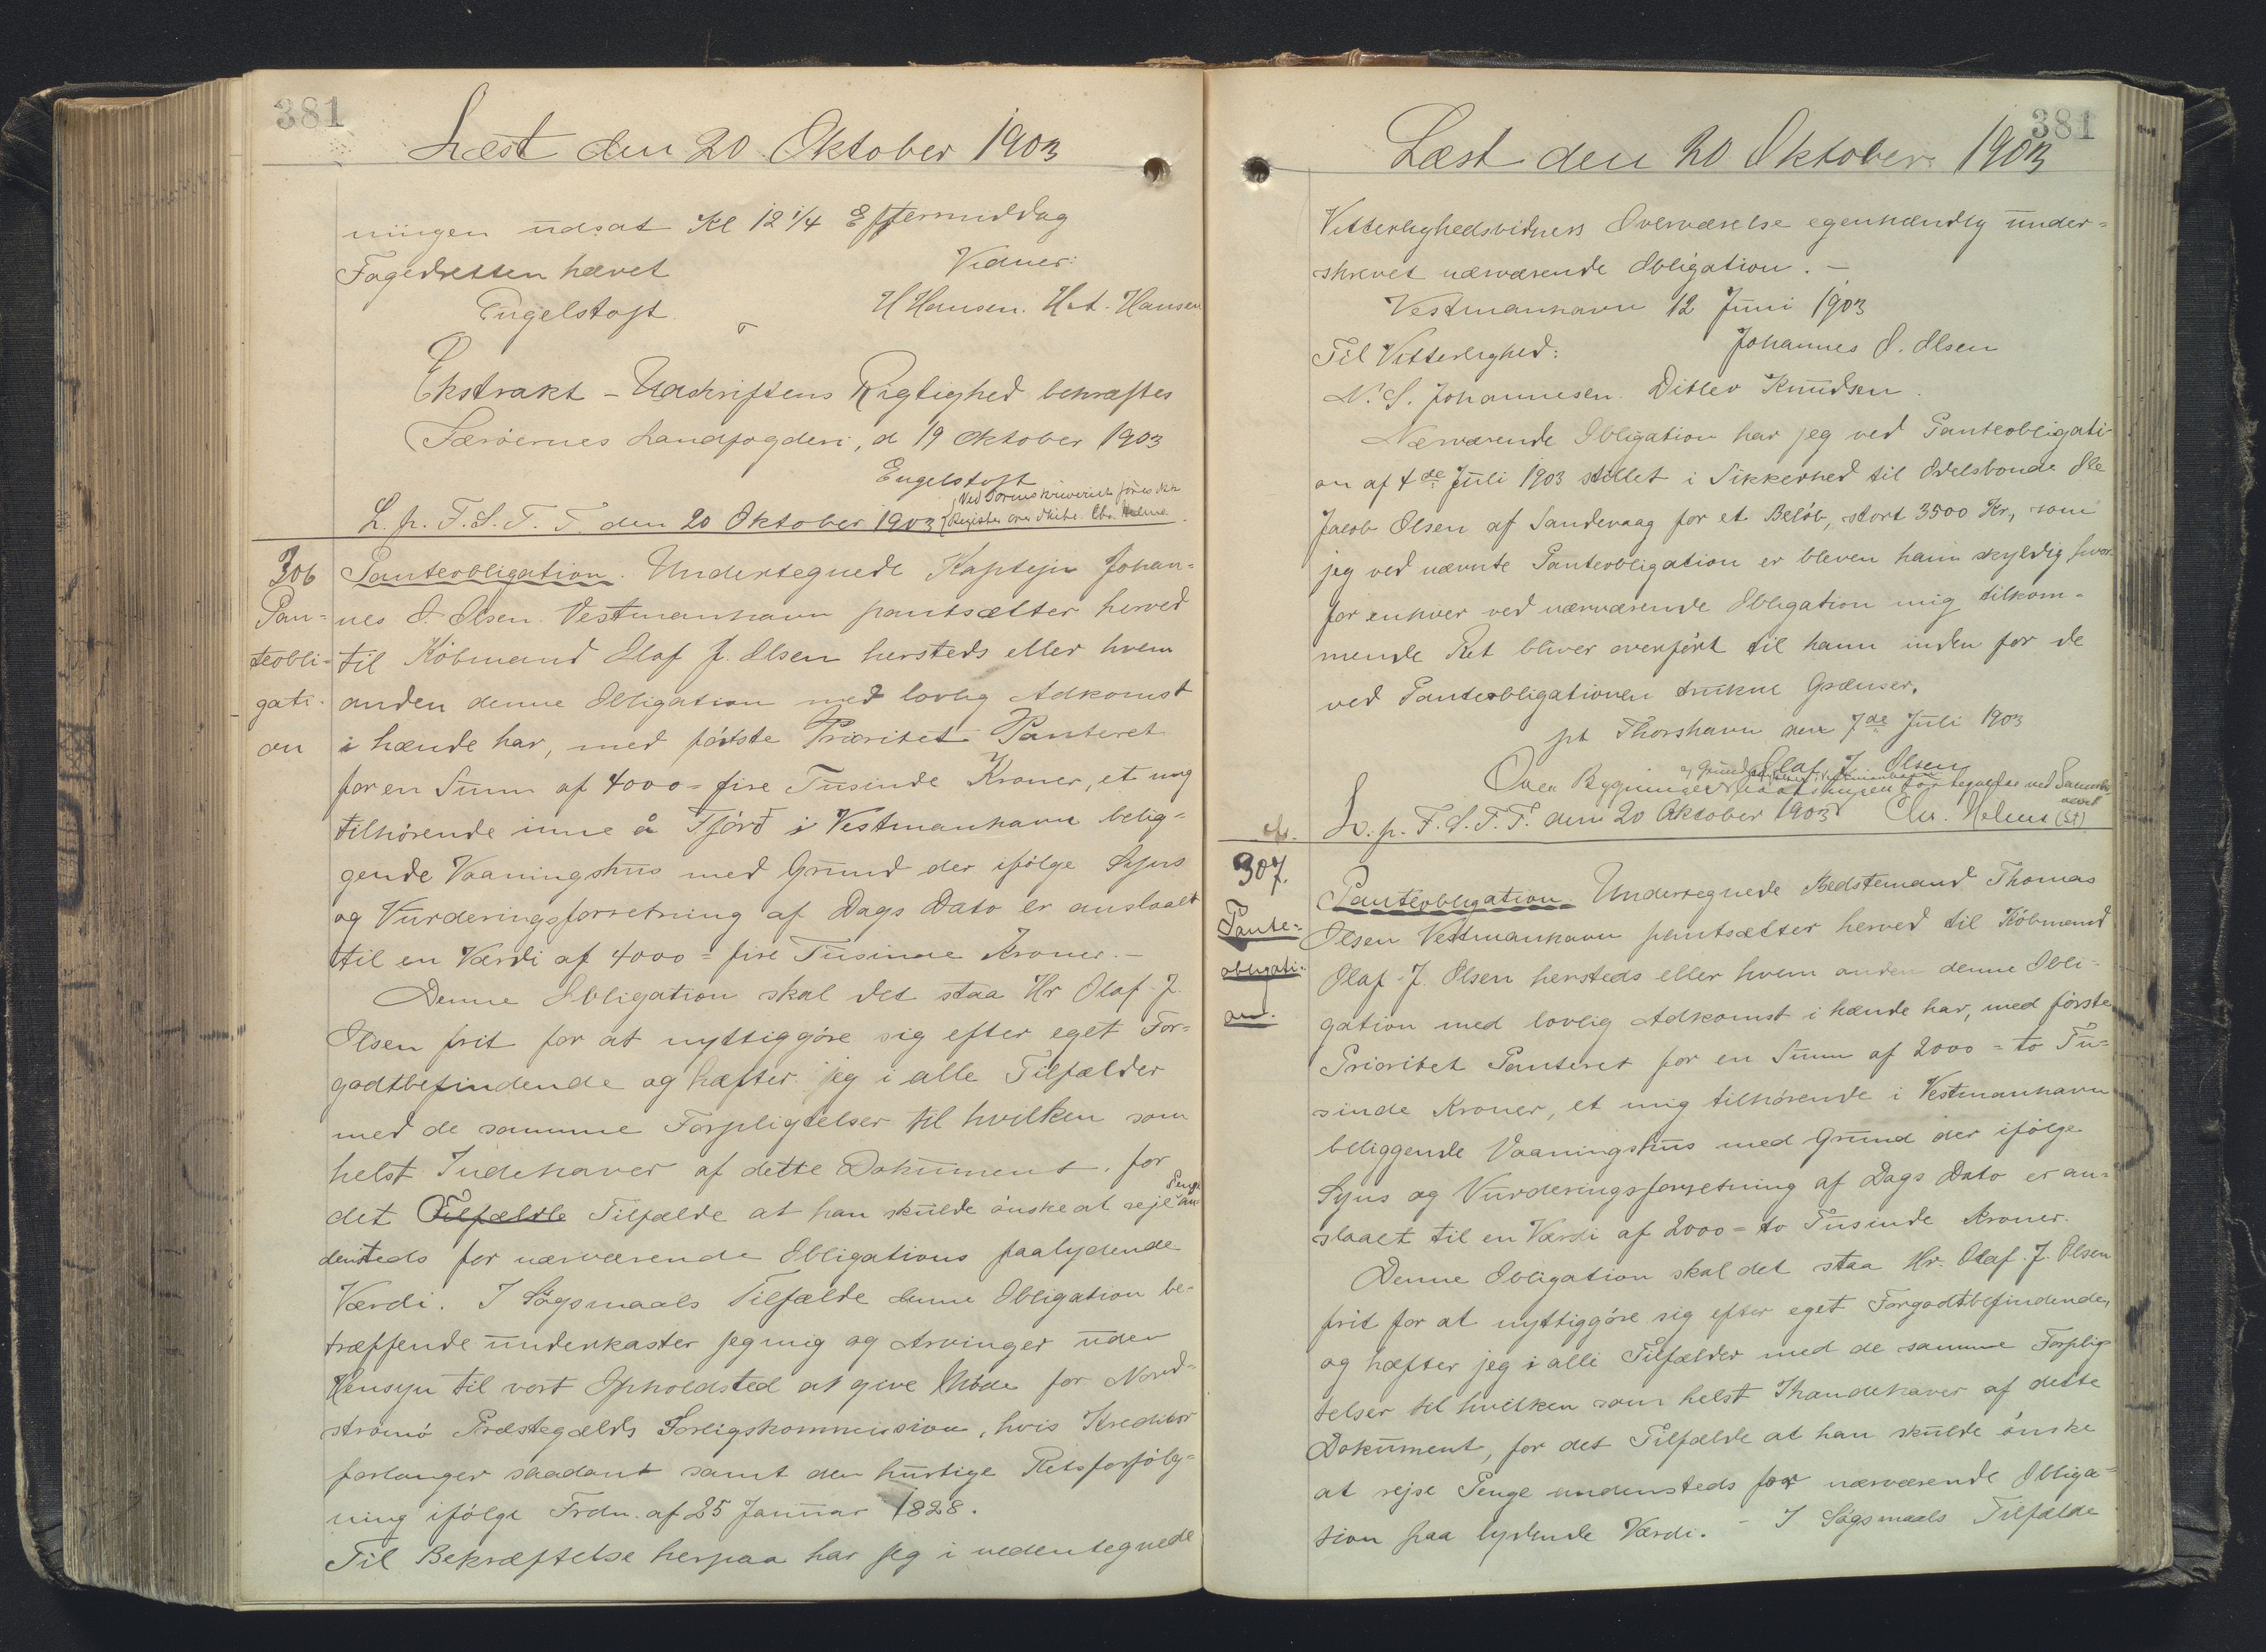 381
Læst den 20 Oktober 1903
ningen udsat Kl 12 1/4 Eftermiddag
Fogedretten hævet Vidner:
Engelstoft. H Hansen. H.A. Hansen
Ekstrakt-Udskriftens Rigtighed bekræftes
Færøernes Landfogderi, d 19 Oktober 1903
Engelstoft
L. p. F. S. T. T. den 20 Oktober 1903 Ved Sorenskriveriet føres ikke
Register over Skibe. Chr. Helms
306
Pan=
teobli=
gati-
on
Panteobligation. Undertegnede Kaptejn Johan=
nes O. Olsen. Vestmanhavn pantsætter herved
til Købmand Olaf J. Olsen hersteds eller hvem
anden denne Obligation med lovlig Adkomst
i hænde har, med første Prioritet Panteret
for en Sum af 4000 = fire Tusinde Kroner, et mig
tilhørende inne å Fjørð i Vestmanhavn belig=
gende Vaaningshus med Grund der ifølge Syns
og Vurderingsforretning af Dags Dato er anslaaet
til en Værdi af 4000 = fire Tusinde Kroner.-
Denne Obligation skal det staa Hr Olaf J.
Olsen frit for at nyttiggøre sig efter eget For=
godtbefindende og hæfter jeg i alle Tilfælder
med de samme Forpligtelser til hvilken som
helst Indehaver af dette Dokument, for
det Tilfælde Tilfælde at han skulde ønske at rejse Penge an
densteds for nærværende Obligations paalydende
Værdi. I Søgsmaals Tilfælde denne Obligation be-
træffende underkaster jeg mig og Arvinger uden
Hensyn til vort Opholdsted at give Møde for Nord=
strømø Præstegælds Forligskommission, hvis Kreditor
forlanger saadant samt den hurtige Retsforfølg=
ning ifølge Frdn. af 25 Januar 1828.
Til Bekræftelse herpaa har jeg i nedentegnede
381
Læst den 20 Oktober 1903
Vitterlighedsvidners Overværelse egenhændig under=
skrevet nærværende Obligation. -
Vestmanhavn 12 Juni 1903
Til Vitterlighed: Johannes O. Olsen
N. S. Johannesen. Ditlev Knudsen.
Nærværende Obligation har jeg ved Panteobligati-
on af 4de Juli 1903 stillet i Sikkerhed til Odelsbonde Ole
Jacob Olsen af Sandevaag for et Beløb, stort 3500 Kr, som
jeg ved nævnte Panteobligation er bleven ham skyldig hvor-
for enhver ved nærværende Obligation mig tilkom-
mende Ret bliver overført til ham inden for de
ved Panteobligationen trukne Grænser.
pt Thorshavn den 7de Juli 1903
Olaf J. Olsen
Over Bygninger
L. p. F. S. T. T. den 20 Oktober 1903 Chr. Helms (St)
307.
Pante=
obligati=
on.
Panteobligation. Undertegnede Bedstemand Thomas
Olsen Vestmanhavn pantsætter herved til Købmand
Olaf J. Olsen hersteds eller hvem anden denne Obli-
gation med lovlig Adkomst i hænde har, med første
Prioritet Panteret for en Sum af 2000 = to Tu=
sinde Kroner, et mig tilhørende i Vestmanhavn
beliggende Vaaningshus med Grund der ifølge
Syns og Vurderingsforretning af Dags Dato er an=
slaaet til en Værdi af 2000 = to Tusinde Kroner.
Denne Obligation skal det staa Hr. Olaf. J. Olsen
frit for at nyttiggøre sig efter eget Forgodtbefindende,
og hæfter jeg i alle Tilfælder med de samme Forplig
telser til hvilken som helst Ihændehaver af dette
Dokument, for det Tilfælde at han skulde ønske
at rejse Penge andensteds for nærværende Obliga=
tion paa lydende Værdi. - I Søgsmaals Tilfælde